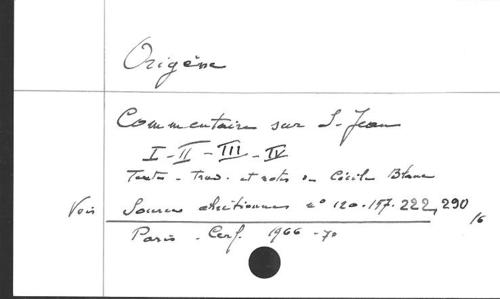 Origène
Commentaire sur S-Jean
I-II-III-IV
Texte - Trad. et notes de Cécile Blanc
Voir Sources chrétiennes n° 120.157.222,290
16
Paris - Cerf. 1966-70